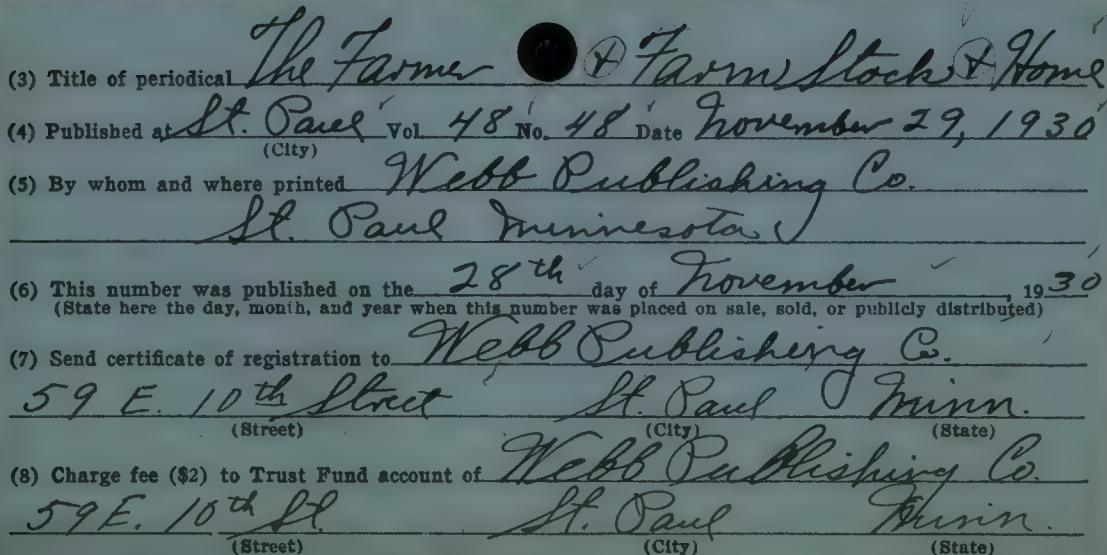 (3) Title of periodical The Farmer & Farm, Stock & Home
(4) Published at St. Paul Vol. 48 No. 48 Date November 29, 1930
(City)
(5) By whom and where printed Webb Publishing Co.
St. Paul Minnesota
(6) This number was published on the 28th day of November, 1930
(State here the day, month, and year when this number was placed on sale, sold, or publicly distributed)
(7) Send certificate of registration to Webb Publishing Co.
59 E. 10th Street St. Paul Minn.
(Street) (City) (State)
(8) Charge fee ($2) to Trust Fund account of Webb Publishing Co.
59 E. 10th St. St. Paul Minn.
(Street) (City) (State)